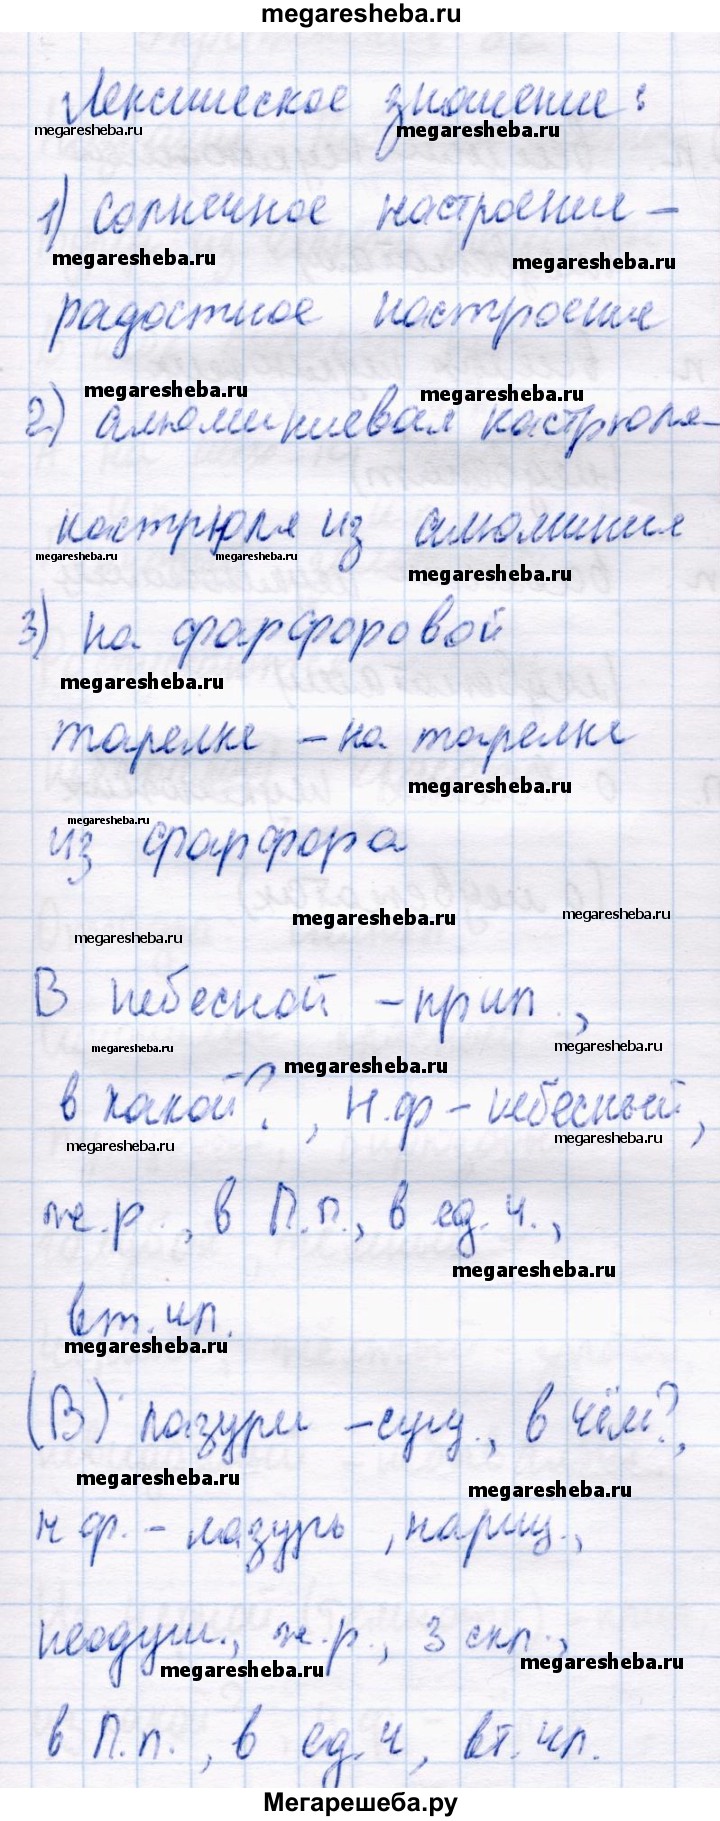 megaresheba.ru
Лексическое значение:
megaresheba.ru megaresheba.ru
1) солнечное настроение –
megaresheba.ru megaresheba.ru
радостное настроение
megaresheba.ru megaresheba.ru
2) алюминиевая кастрюля –
кастрюля из алюминия
megaresheba.ru megaresheba.ru megaresheba.ru
3) на фарфоровой
megaresheba.ru
тарелке – на тарелке
megaresheba.ru
megaresheba.ru
из фарфора
megaresheba.ru megaresheba.ru
megaresheba.ru
В небесной – прил.,
megaresheba.ru megaresheba.ru megaresheba.ru
в какой?, н.ф – небесный,
megaresheba.ru megaresheba.ru
ж.р., в П.п., в ед.ч.,
megaresheba.ru
вт.чл.
megaresheba.ru
(В) лазури – сущ., в чём?,
megaresheba.ru megaresheba.ru
н ф. – лазурь, нариц.,
неодуш., ж.р., 3 скл.,
megaresheba.ru megaresheba.ru
в П.п., в ед.ч, вт.чл.
Мегарешеба.ру